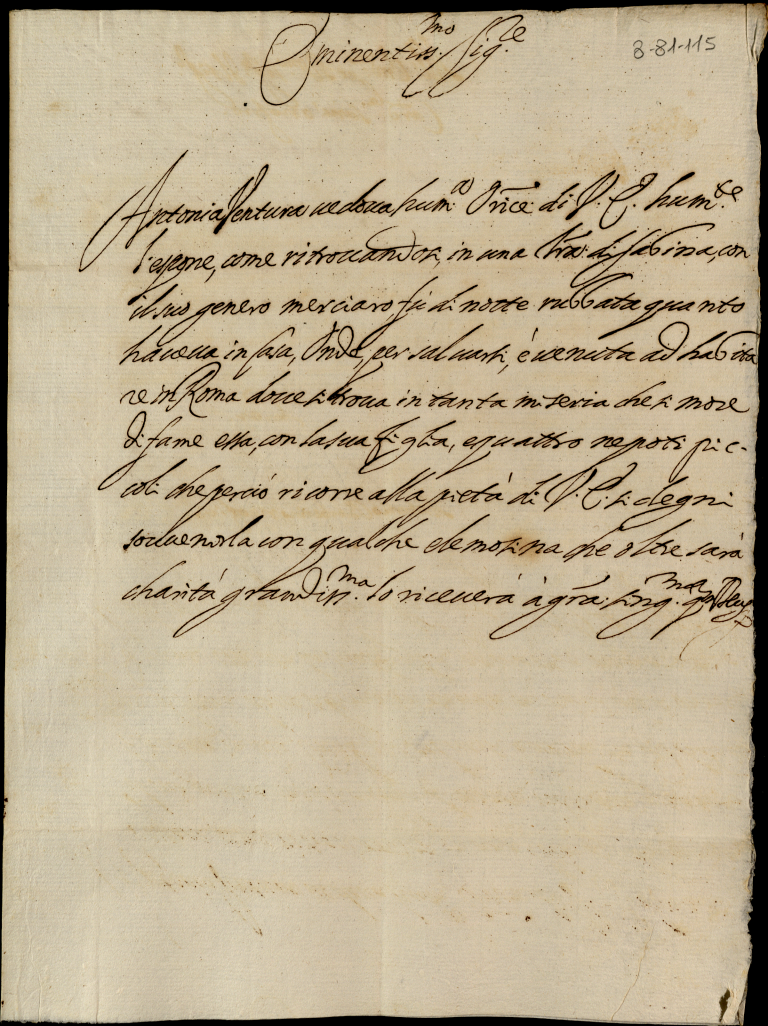 Eminentiss.mo Sig.re
8-81-115
Antonia Ventura uedoua hum.a Orice di V. E. hum.te
l'espone, come ritrouandosi, in una Tra: di sabina, con
il suo genero merciaro, fù di notte rubbata quanto
haueua in Casa, Onde, per saluarsi, è uenuta ad habita
re in Roma doue si troua in tanta miseria che si more
di fame essa, con la sua figlia, e quattro nepoti pic-
coli che perciò ricorre alla pietà di V. E. si degni
souuenirla con qualche elemosina che oltre sarà
charità grandiss.ma lo riceuerà à gra: sing.ma q Deus